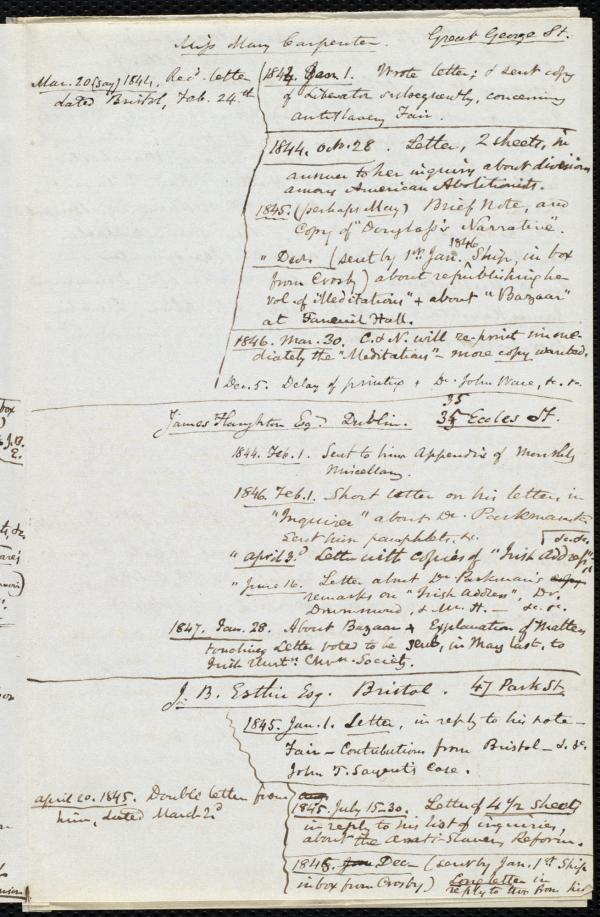 Miss Mary Carpenter. Great George St.
Mar. 20 (say) 1844, Recd. letter
dated Bristol, Feb. 24th
1844, Jan 1. Wrote letter; & sent copy
of Liberator subsequently, concerning
antislavery Fair.
1844. Oct. 28. Letter, 2 sheets, in
answer to her inquiry about divisions
among American Abolitionists.
1845. (perhaps May) Brief Note, and
Copy of "Douglass's Narrative".
" Dec. (sent by 1st Jan. 1846 Ship, in box
from Crosby) about republishing her
vol. of "Meditations" + about "Bazaar"
at Faneuil Hall.
1846. Mar. 30. C. & N. will re-print imme-
diately the "Meditations" - more copy wanted.
Dec. 5. Delay of printing + Dr. John Ware, &c. &c.
James Haughton Esq. Dublin. 35 Eccles St.
35
1844. Feb. 1. Sent to him Appendix of Monthly
Miscellany.
1846. Feb. 1. Short letter on his letter, in
"Inquirer" about Dr. Parkman
Sent him pamphlets, &c. &c. &c.
" April 3d Letter with copies of "Irish Address",
" June 16. Letter about Dr. Parkman's
remarks on "Irish Address", Dr.
Drummond, & Mr. H. — &c. &c.
1847. Jan. 28. About Bazaar + Explanation of Matters
touching Letter voted to be sent, in May last, to
Irish Unitn. Chrn. Society.
J. B. Estlin Esq. Bristol. 47 Park St.
1845. Jan. 1. Letter, in reply to his note —
Fair — Contributions from Bristol — &. &c.
John T. Sargent's Case.
April 20. 1845. Double letter from
him, dated March 2d
1845. July 15-30. Letter of 4 1/2 sheets
in reply to his list of inquiries,
about the Anti-Slavery Reform.
1845. Dec. (sent by Jan. 1st Ship
in box from Crosby.) Long letter in
reply to two from him